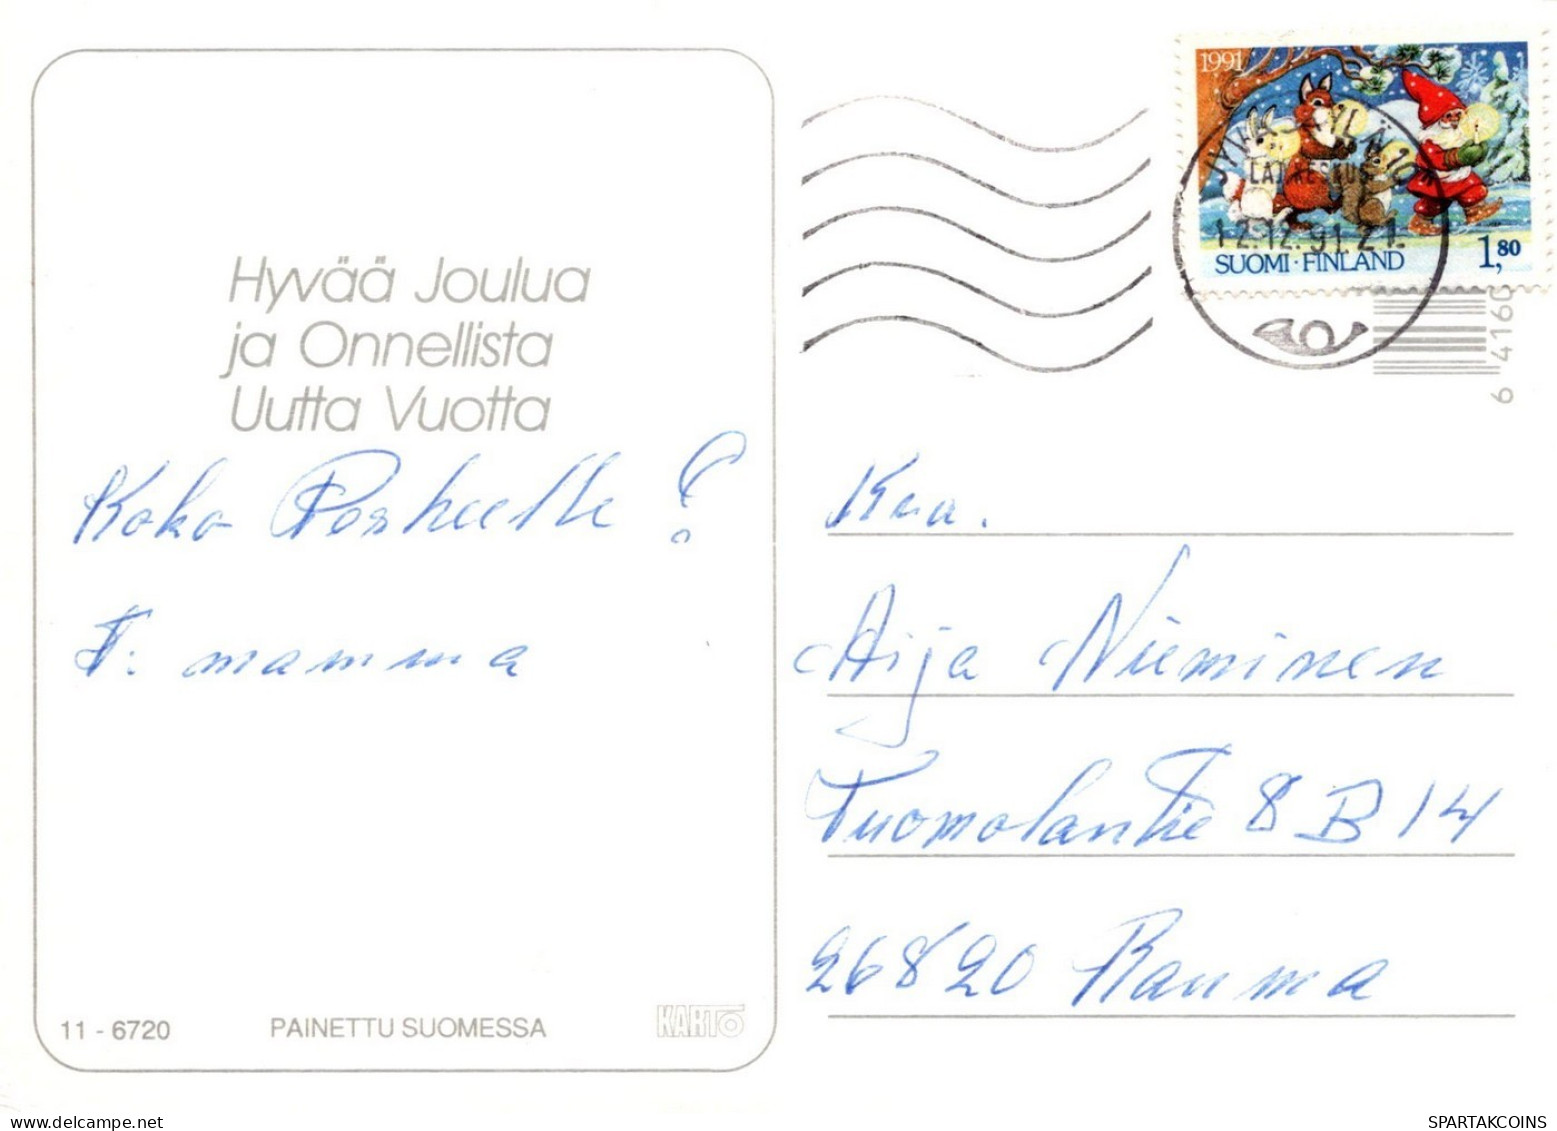 Hyvää Joulua
ja Onnellista
Uutta Vuotta
Koko Perheelle!
T: mamma
11 - 6720 PAINETTU SUOMESSA KARTO
1991
JYVÄSKYLÄ 10
LAJ.KESKUS
12.12.91.21.
SUOMI·FINLAND 1,80
6 4160
Aija Nieminen
Tuomolantie 8 B 14
26820 Rauma
www.delcampe.net
SPARTAKCOINS